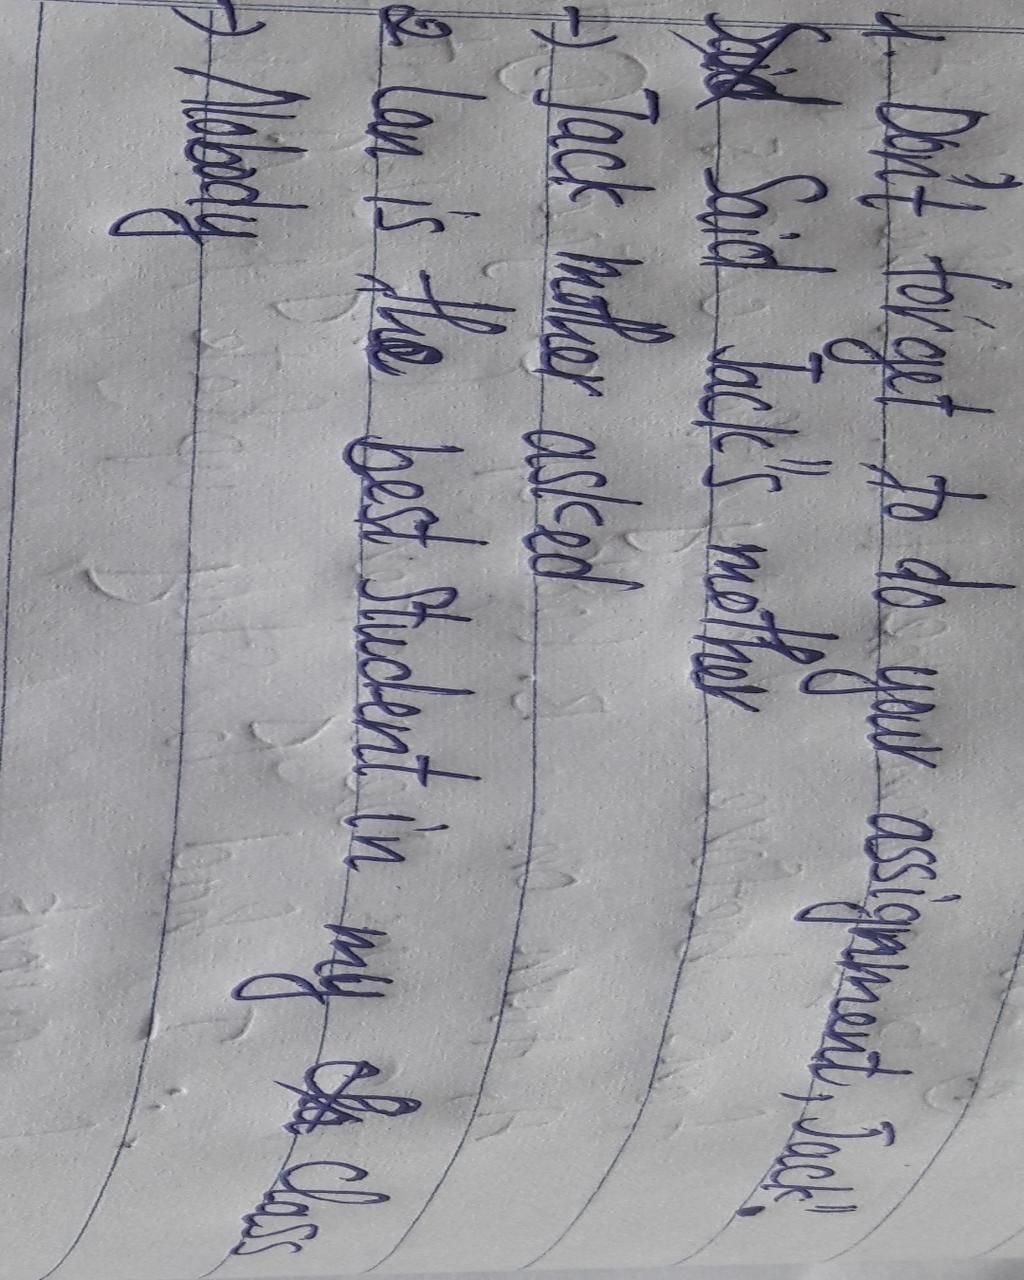 1. Don't forget to do your assignment, Jack".
Said Jack"s mother
→ Jack mother asked
2 Lan is the best student in my class
→ Nobody